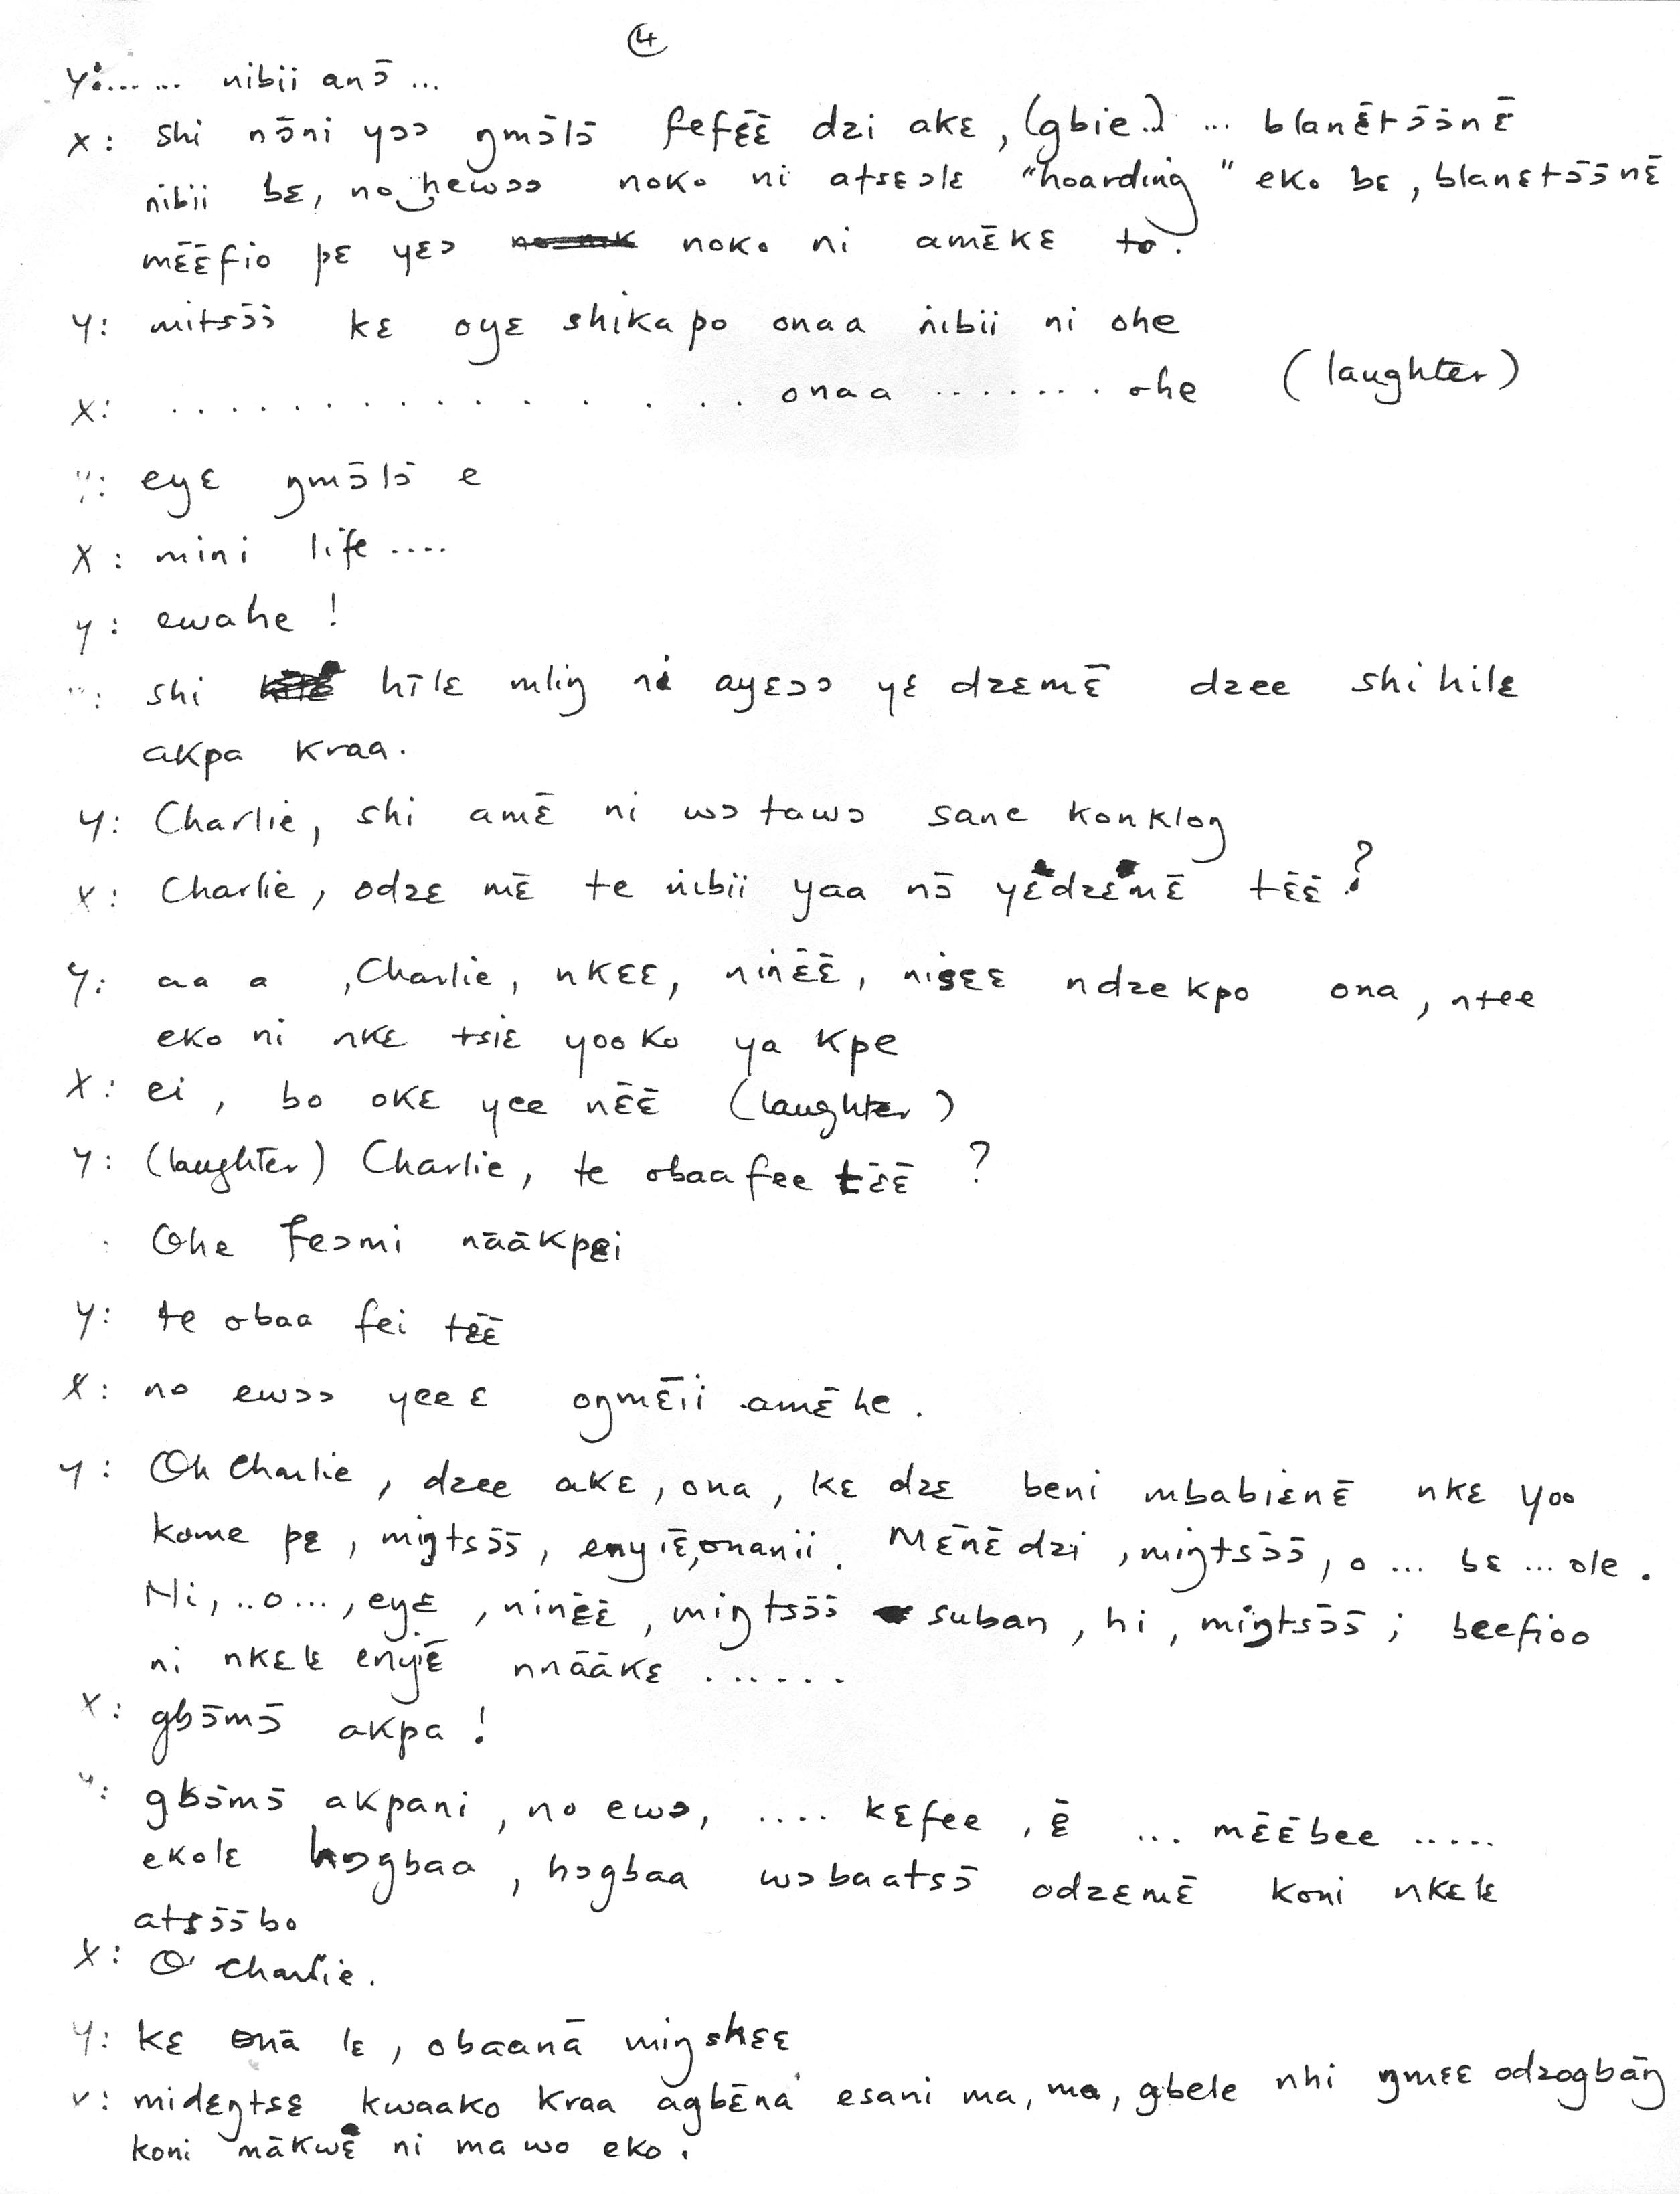 4
Y: ..... ... nibii anɔ̄ ...
X: shi nɔ̄ni yɔɔ ŋmɔ̄lɔ̄ fefɛ̄ɛ̄ dzi akɛ, (gbie..) ... blanɛ̄tɔ̄ɔ̄nɛ̄
nibii bɛ, no hewɔɔ noko ni atsɛɔlɛ "hoarding" eko bɛ, blanɛtɔ̄ɔ̄nɛ̄
mɛ̄ɛ̄fio pɛ yɛɔ noko ni amɛ̄kɛ to.
Y: mitsɔ̄ɔ̄ kɛ oyɛ shikapo onaa nibii ni ohe
X: . . . . . . . . . . . . . . . onaa ........ ohe (laughter)
": eyɛ ŋmɔ̄lɔ̄ e
X: mini life ....
Y: ewahe !
": shi hīlɛ mliŋ ni ayɛɔɔ yɛ dzɛmɛ̄ dzee shihilɛ
akpa kraa.
Y: Charlie, shi amɛ̄ ni wɔtawɔ sane konkloŋ
X: Charlie, odzɛ mɛ̄ te nibii yaa nɔ̄ yɛdzɛmɛ̄ tɛ̄ɛ̄ ?
Y: aa a , Charlie, nkɛɛ, ninɛ̄ɛ̄, nisɛɛ ndzekpo ona, ntee
eko ni nkɛ tsiɛ yooko ya kpe
X: ei, bo okɛ yee nɛ̄ɛ̄ (laughter)
Y: (laughter) Charlie, te obaafee tɛ̄ɛ̄ ?
Ohe feɔmi nāākpɛi
Y: te obaa fei tɛ̄ɛ̄
X: no ewɔɔ yee ɛ oŋmɛ̄ii amɛ̄he.
Y: Oh Charlie, dzee akɛ, ona, kɛ dzɛ beni mbabiɛnɛ̄ nkɛ yoo
kome pɛ, miŋtsɔ̄ɔ̄, enyiɛ̄, onanii. Mɛ̄nɛ̄ dzi, miŋtsɔ̄ɔ̄, o ... bɛ ... ole.
Ni, ..o..., eyɛ, ninɛ̄ɛ̄, miŋtsɔ̄ɔ̄ suban, hi, miŋtsɔ̄ɔ̄; beefioo
ni nkɛlɛ enyiɛ̄ nnāākɛ ......
X: gbɔ̄mɔ̄ akpa !
Y: gbɔ̄mɔ̄ akpani, no ewɔ, .... kɛfee, ɛ̄ ... mɛ̄ɛ̄bee .....
ekolɛ hɔgbaa, hɔgbaa wɔbaatsɔ̄ odzɛmɛ̄ koni nkɛlɛ
atsɔ̄ɔ̄bo
X: O' Charlie.
Y: kɛ onā lɛ, obaanā miŋshɛɛ
Y: midɛŋtsɛ kwaako kraa agbɛ̄na esani ma, ma, gbele nhi ŋmɛɛ odzogbāŋ
koni mākwɛ̄ ni mawo eko.